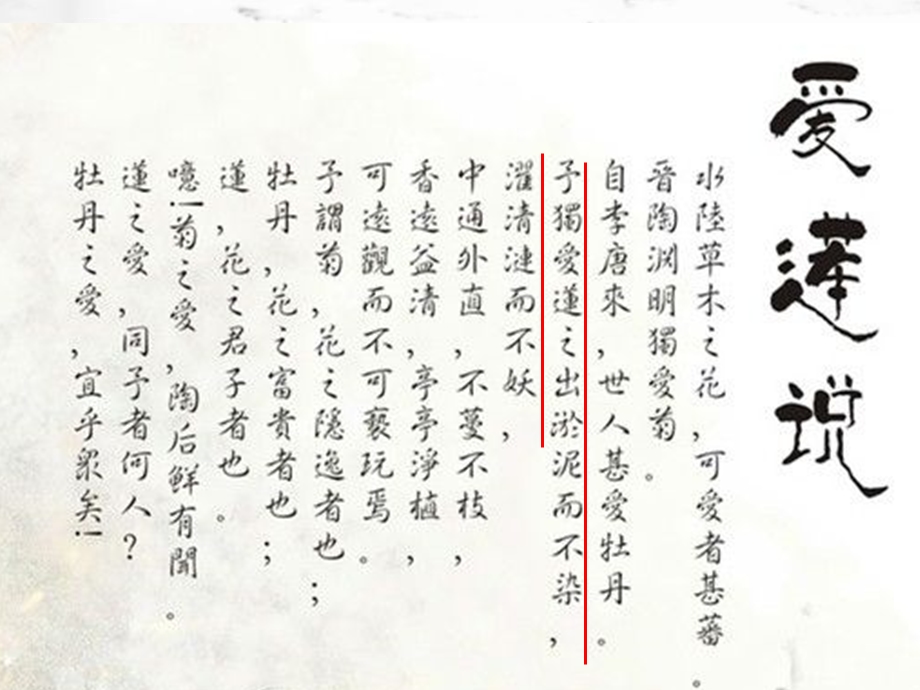 爱蓮说
水陸草木之花，可愛者甚蕃。
晋陶渊明獨愛菊。
自李唐來，世人甚愛牡丹。
予獨愛蓮之出淤泥而不染，
濯清漣而不妖，
中通外直，不蔓不枝，
香遠益清，亭亭淨植，
可遠觀而不可褻玩焉。
予謂菊，花之隱逸者也；
牡丹，花之富貴者也；
蓮，花之君子者也。
噫！菊之愛，陶后鮮有聞。
蓮之愛，同予者何人？
牡丹之愛，宜乎衆矣！